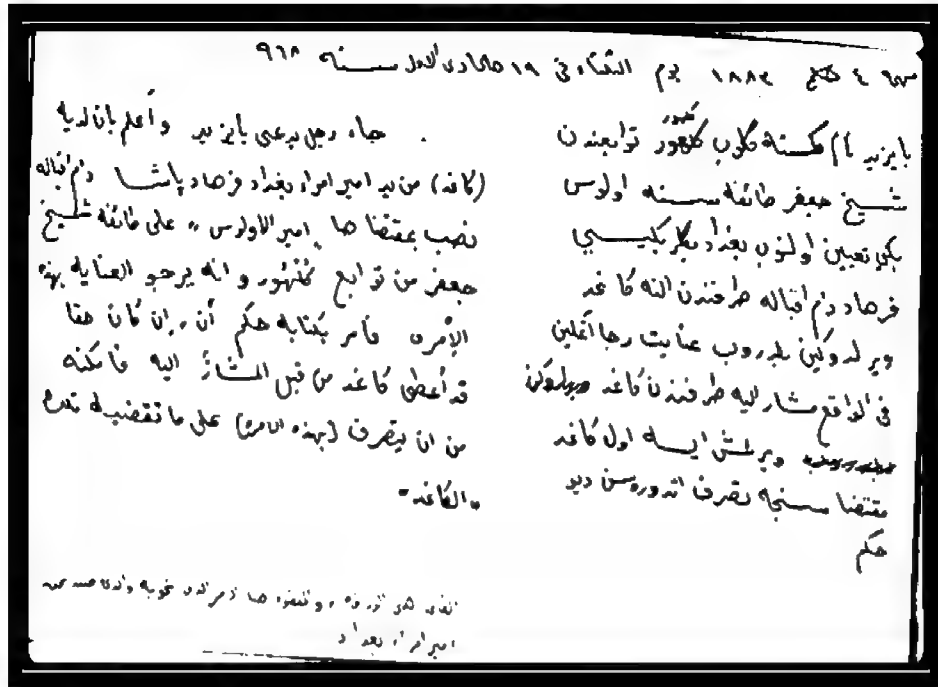 ١٨٨٤ يوم الثلثاء في ١٩ جمادى الاول سنة ٩٦٨
بايزيد نام كمسنه كلوب كلهور توابعندن
شيخ جعفر طائفه سسنه اولوس
بكي تعيين اولنوب بغداد بكلر بكيسي
فرهاد دام اقباله طرفندن النه كاغد
ويرلدوكين بلدروب عنايت رجا اتمكين
في الواقع مشار اليه طرفندن كاغد
ويرلمش ايسه اول كاغد
مقتضا سنجه تصرف اتدوره سن ديو
حكم
جاء رجل يدعى بايزيد وأعلم بان لديه
(كاغد) من يد امير امراء بغداد فرهاد پاشا دام اقباله
نصب بمقتضاها "امير الاولوس" على طائفة شيخ
جعفر من توابع كلهور وانه يرجو العناية بهذه
الأمره فأمر بكتابه حكم أن، إن كان حقا
قد أعطى كاغد من قبل المشار اليه فأمكنه
من ان يتصرف (بهذه الامرة) على ما تقتضيه
"الكاغد"
امير امراء بغداد